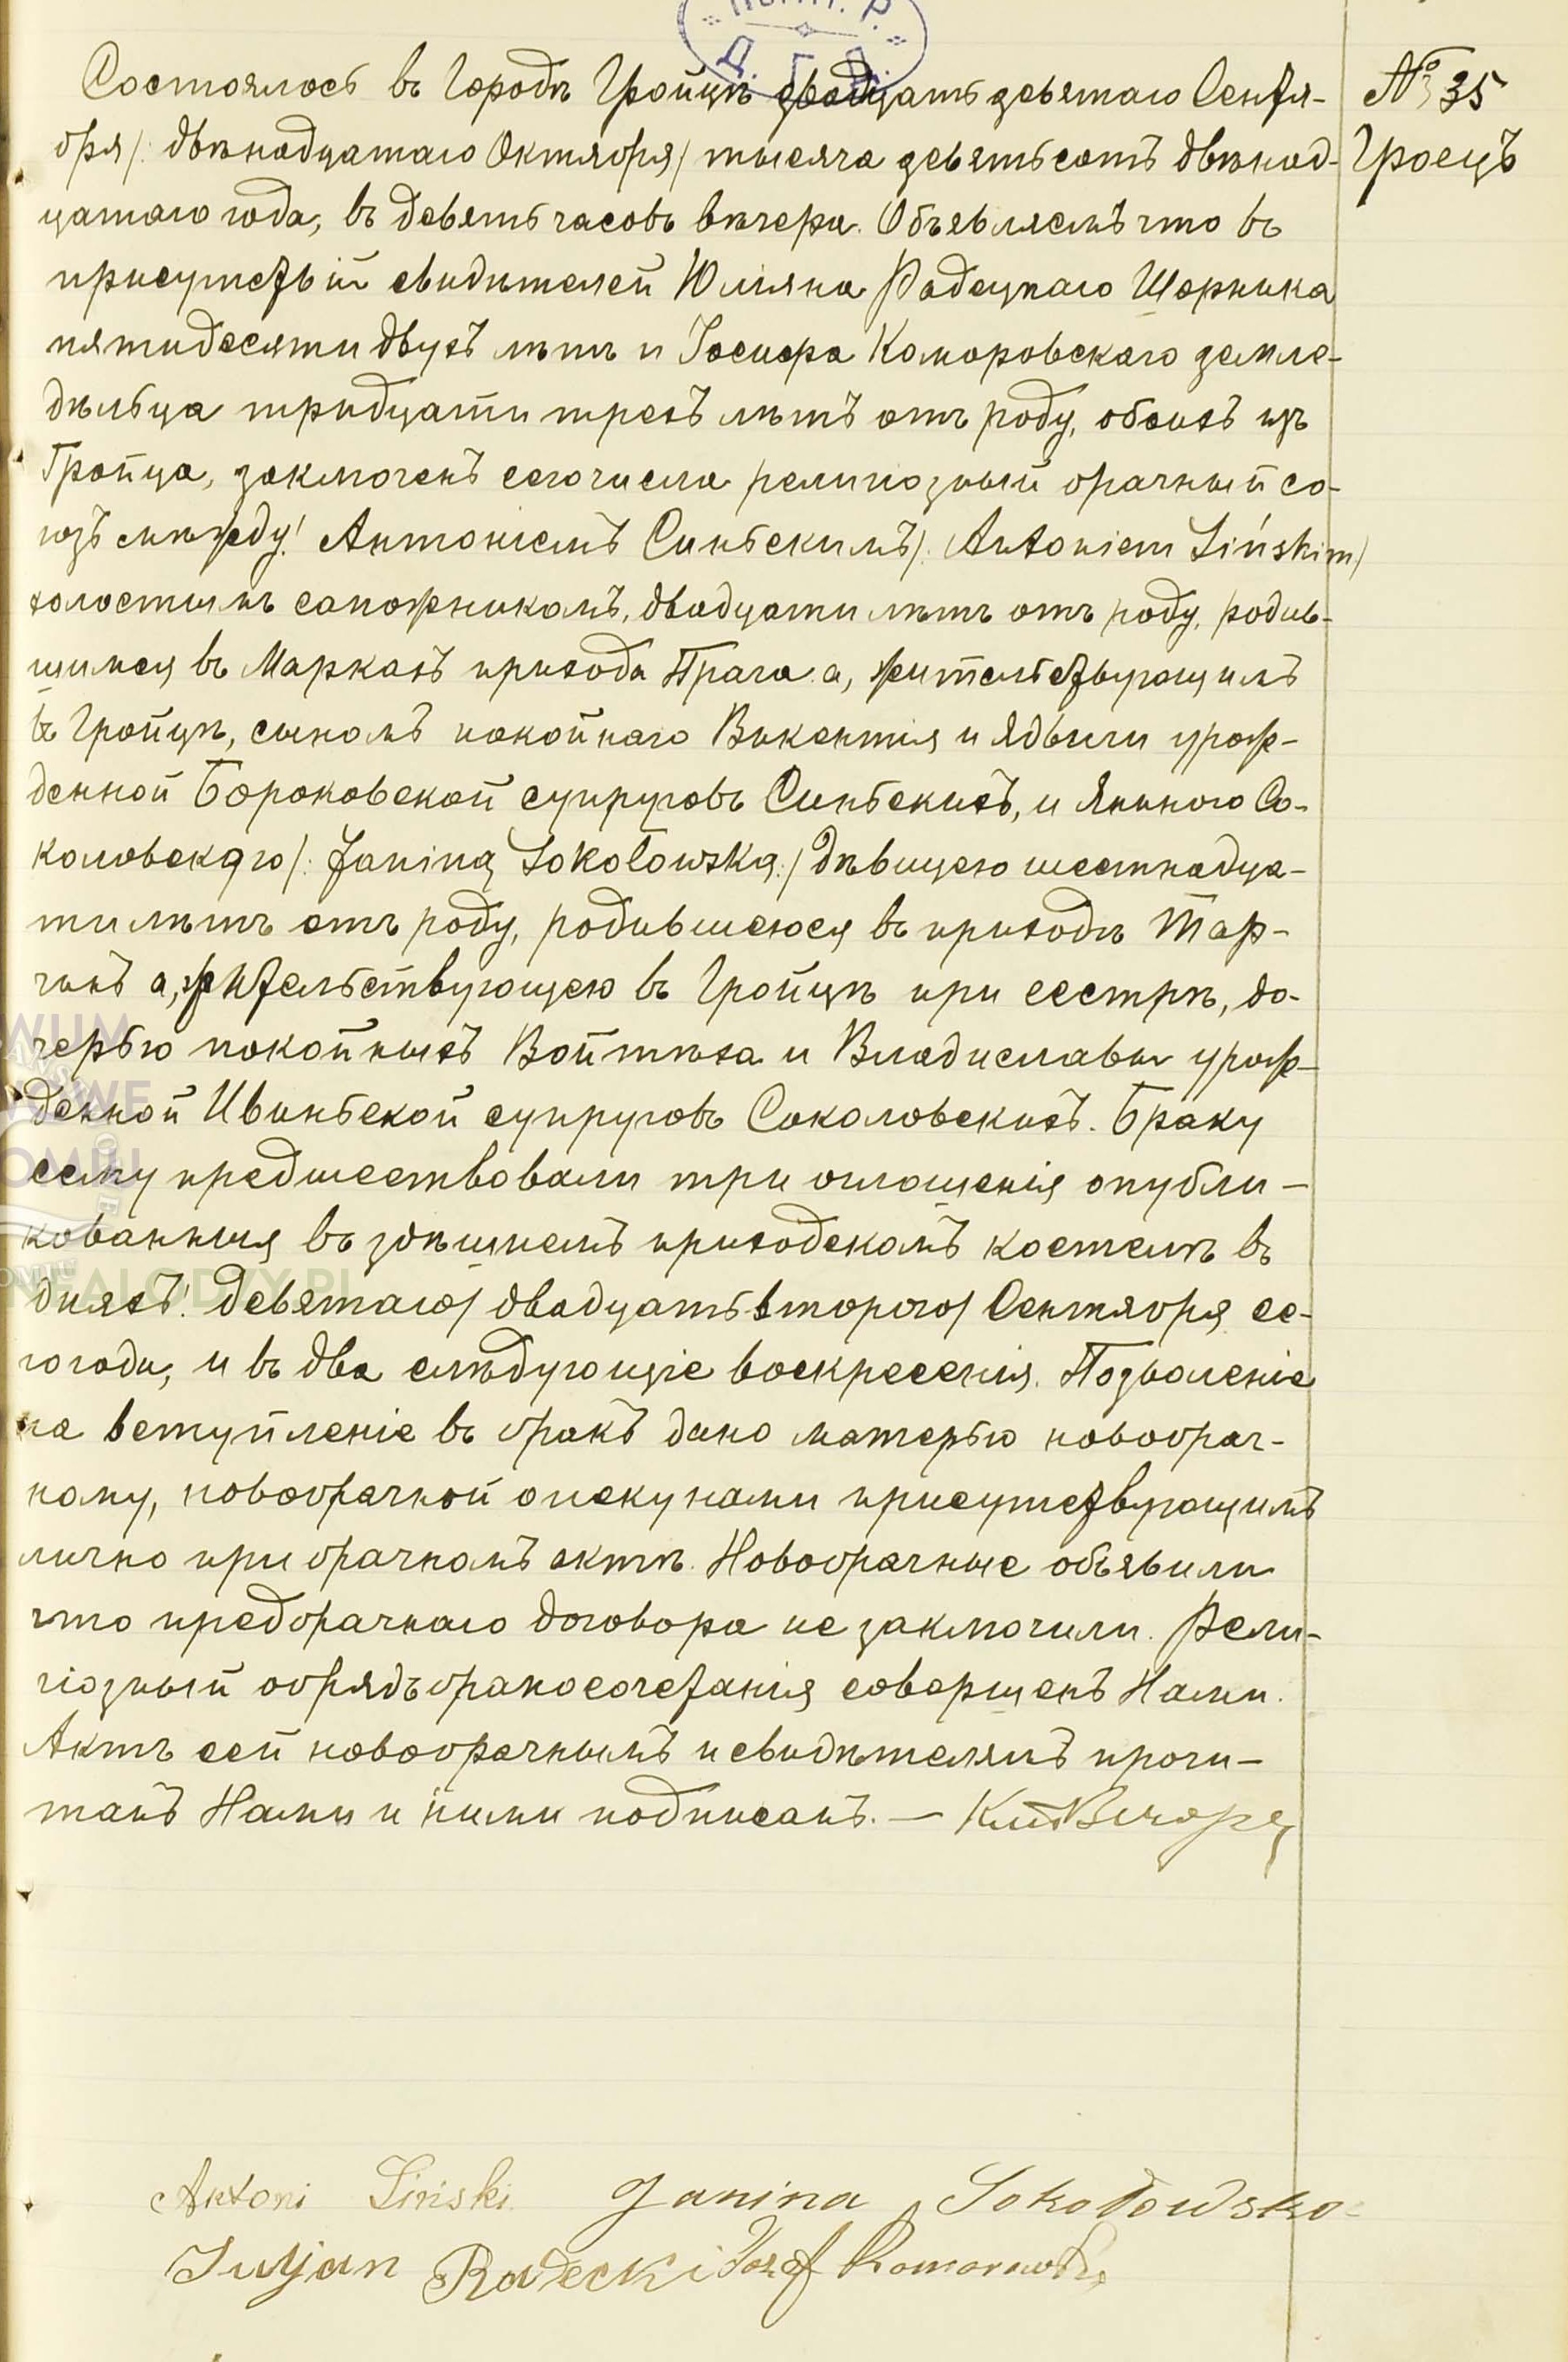 № 35
Гроецъ
Состоялось въ Городѣ Гройцѣ двадцать девятаго Сентя-
бря /: двѣнадцатаго Октября/ тысяча девятьсотъ двѣнад-
цатаго года, въ девять часовъ вѣчера. Объявляемъ что въ
присутствіи свидѣтелей Юліяна Радецкаго Шорника
пятидесяти двухъ лѣтъ и Іосифа Коморовскаго земле-
дѣльца тридцати трехъ лѣтъ отъ роду, обоихъ изъ
Гройца, заключенъ сего числа религіозный брачный со-
юзъ между: Антоніемъ Синьскимъ /: Antoniem Sińskim/
холостымъ сапожникомъ, двадцати лѣтъ отъ роду, родив-
шимся въ Маркахъ прихода Прага а, жительствующимъ
въ Гройцѣ, сыномъ покойнаго Викентія и Ядвиги урож-
денной Бороковской супруговъ Синьскихъ, и Яниною Со-
коловскою /: Janiną Sokołowską:/ дѣвицею шестнадца-
ти лѣтъ отъ роду, родившеюся въ приходѣ Тар-
чинъ а, жительствующею въ Гройцѣ при сестрѣ, до-
черью покойныхъ Войтѣха и Владиславы урож-
денной Ивиньской супруговъ Соколовскихъ. Браку
сему предшествовали три оглашенія опубли-
кованныя въ здѣшнемъ приходскомъ костелѣ въ
дняхъ: девятаго/ двадцать втораго/ Сентября се-
го года, и въ два слѣдующіе воскресенія. Позволеніе
на вступленіе въ бракъ дано матерью новобрач-
ному, новобрачной опекунами присутствующимъ
лично при брачномъ актѣ. Новобрачные объявили
что предбрачнаго договора не заключили. Рели-
гіозный обрядъ бракосочетанія совершенъ Нами.
Актъ сей новобрачнымъ и свидѣтелямъ прочи-
танъ Нами и ними подписанъ. —
Antoni Siński Janina Sokołowska
Juljan Radecki Józef Komorowski